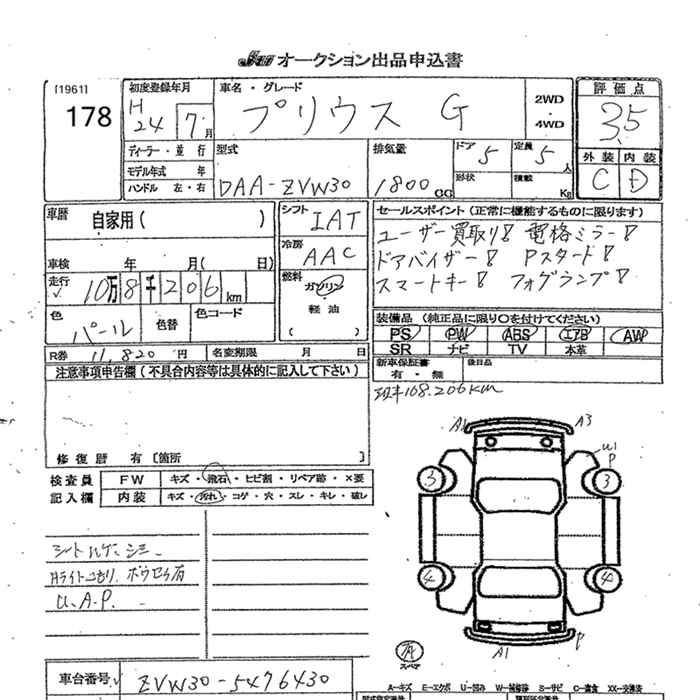 JU オークション出品申込書
[1961]
178
初度登録年月
H24 7月
車名・グレード
プリウス G
2WD・4WD
評価点
3.5
ディーラー・並行
モデル年式 年
ハンドル 左・右
型式
DAA-ZVW30
排気量
1800 CC
ドア 5
定員 5人
形状
積載 Kg
外装 内装
C D
車歴 自家用( )
シフト IAT
セールスポイント(正常に機能するものに限ります)
ユーザー買取り! 電格ミラー!
ドアバイザー! Pスタード!
スマートキー! フォグランプ!
冷房 AAC
車検 年 月( 日)
走行 10万8千206km
燃料 ガソリン
軽油
( )
色 パール
色替
色コード
装備品(純正品に限り○を付けてください)
PS PW ABS エアB AW
SR ナビ TV 本革
R券 11,820円
名変期限 月 日
新車保証書 有・無
後日品
注意事項申告欄(不具合内容等は具体的に記入して下さい)
108.206km
修復歴 有〔箇所 〕
検査員記入欄
FW キズ・飛石・ヒビ割・リペア跡・×要
内装 キズ・汚れ・コゲ・穴・スレ・キレ・破レ
A1 A3
U1 P
3 3
シートハゲ、シミ
Hライトコモリ. ボウセイ有
U.A.P.
4 4
A1 P
スペア
車台番号 ZVW30-5476430
A－キズ E－エクボ U－凹み W－補修跡 S－サビ C－腐食 XX－交換済